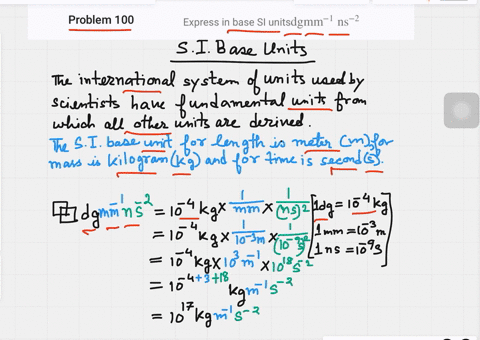 Problem 100
Express in base SI unitsdgmm⁻¹ ns⁻²
S.I. Base Units
The international system of units used by
scientists have fundamental units from
which all other units are derived.
The S.I. base unit for length is meter (m), for
mass is kilogram (kg) and for time is second (s).
dg mm⁻¹ ns⁻² = 10⁻⁴ kg × 1/mm × 1/(ns)² [1dg = 10⁻⁴ kg
= 10⁻⁴ kg × 1/10⁻³m × 1/(10⁻⁹s)² 1mm = 10⁻³ m
= 10⁻⁴ kg × 10³ m⁻¹ × 10¹⁸ s⁻² 1ns = 10⁻⁹s]
= 10⁻⁴⁺³⁺¹⁸ kg m⁻¹ s⁻²
= 10¹⁷ kg m⁻¹ s⁻²